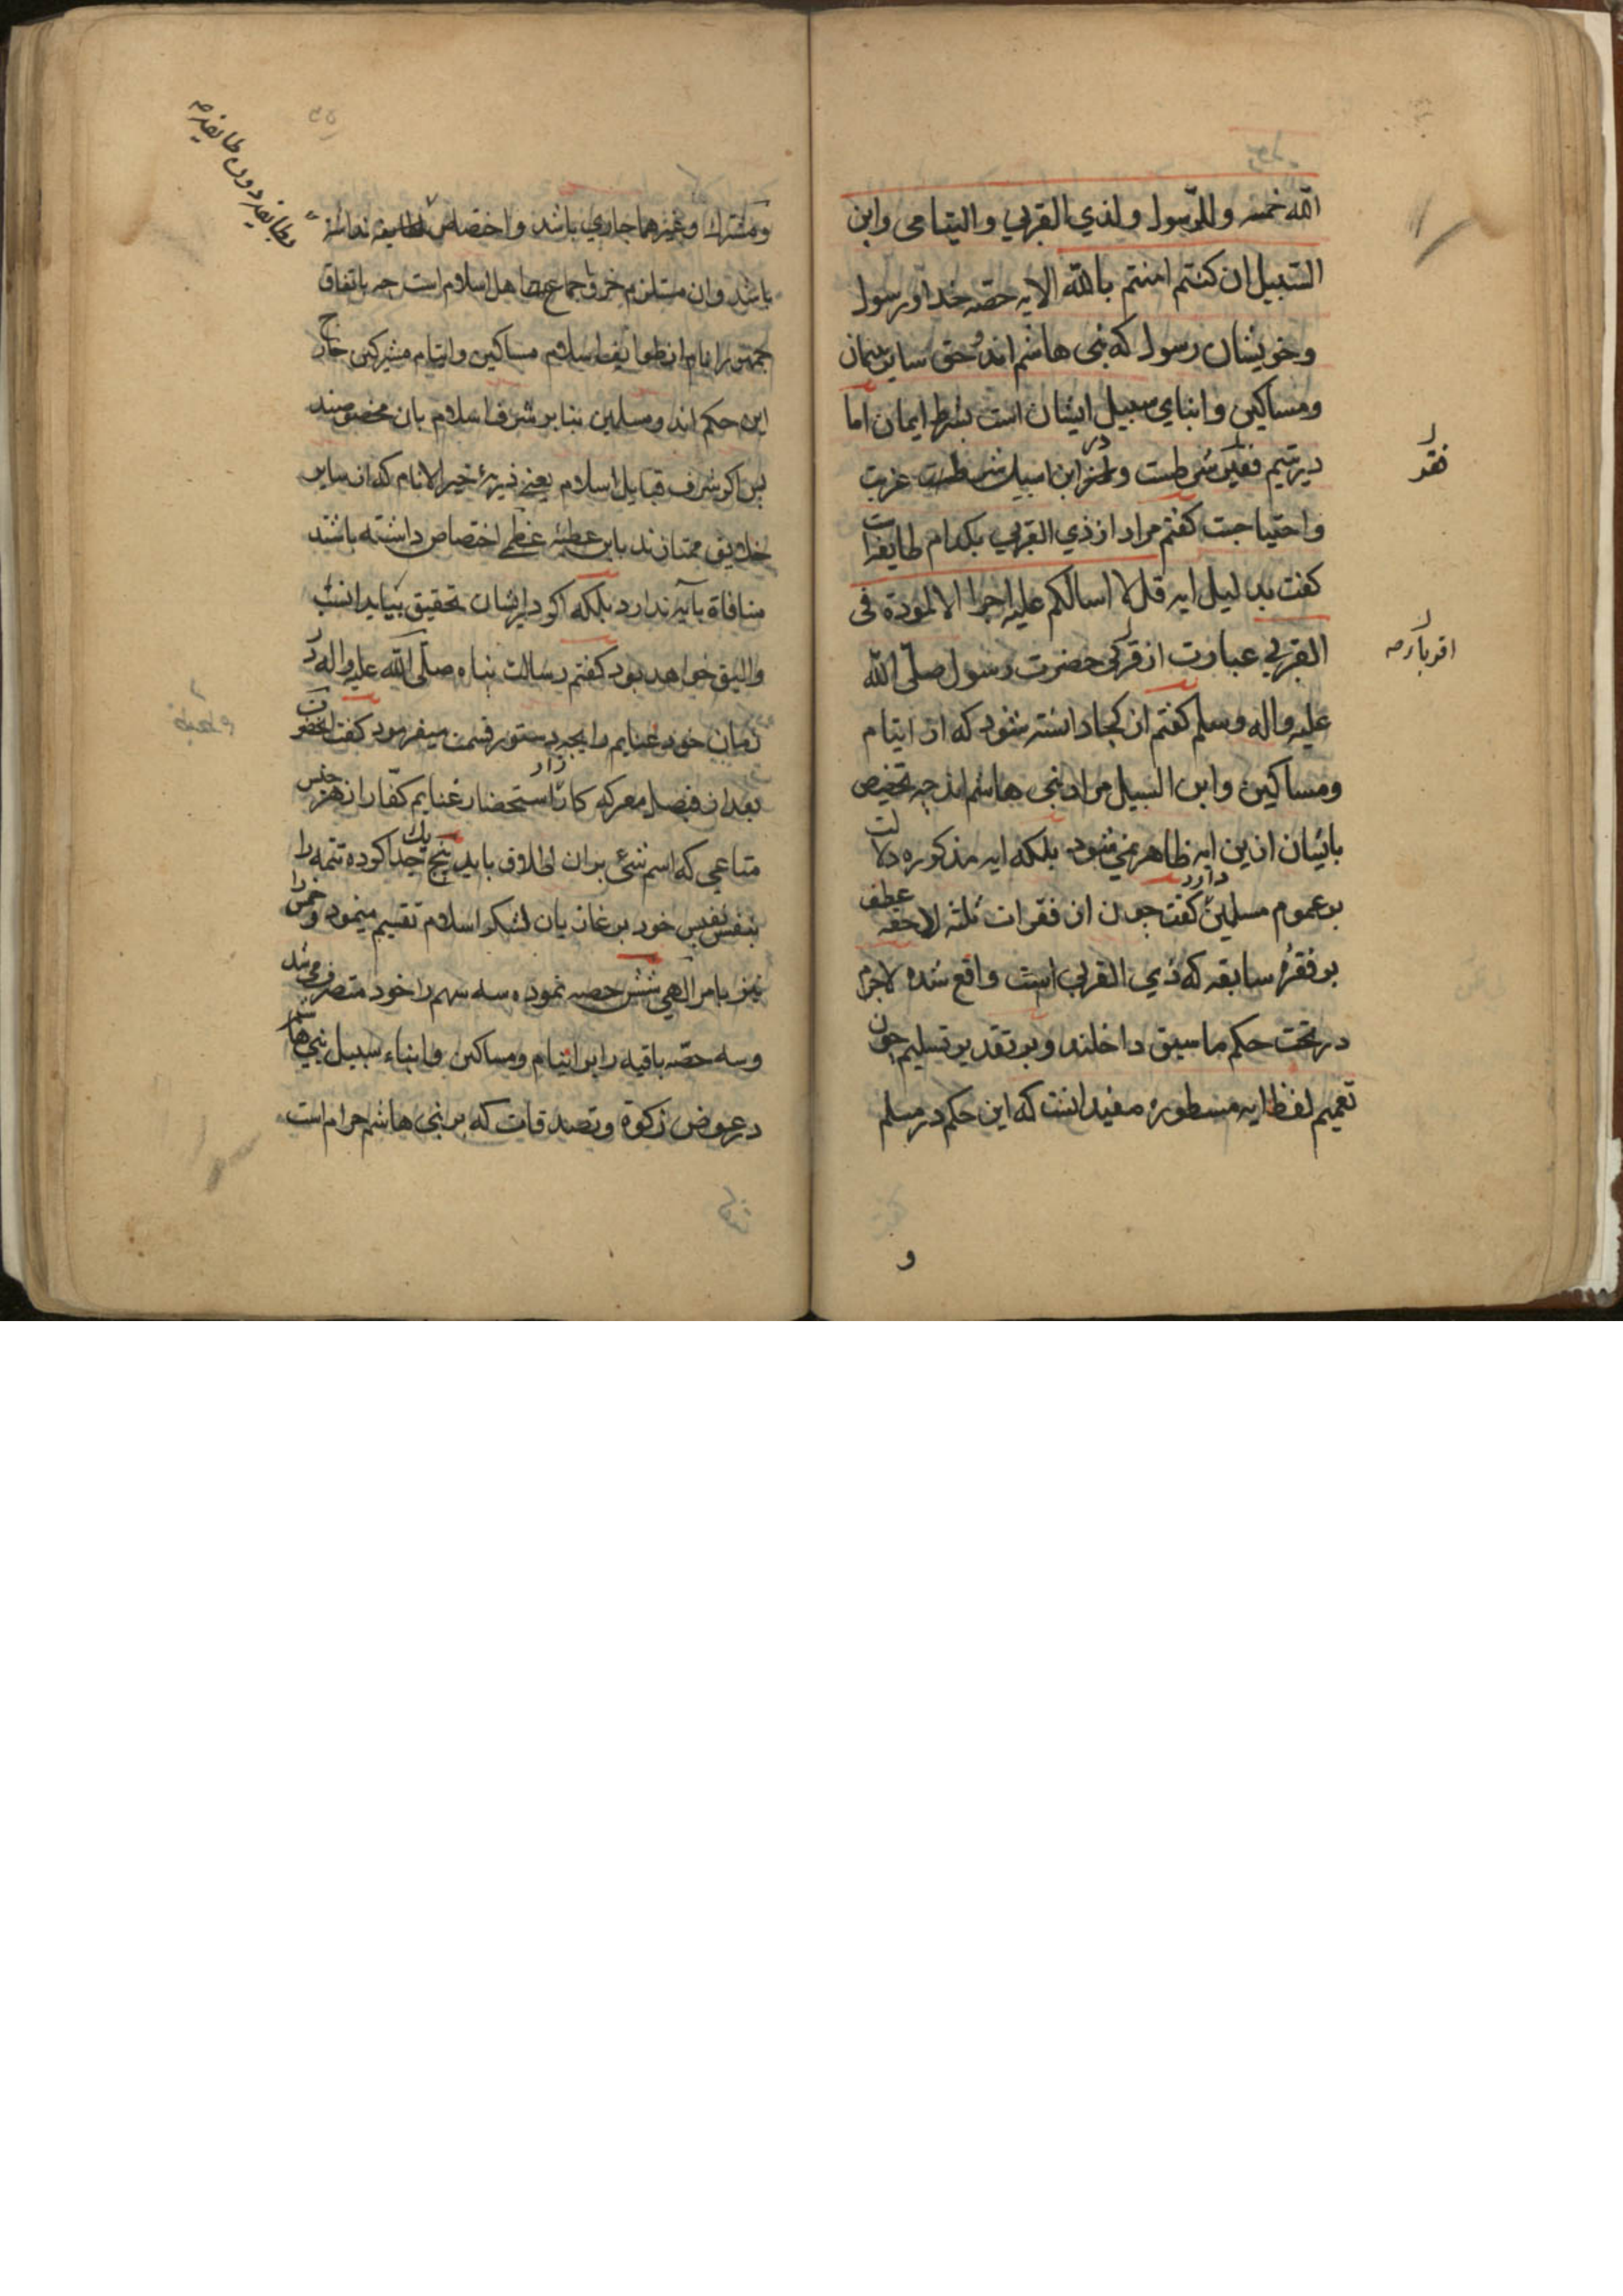 الله خمسه وللرسول ولذي القربي واليتامى وابن
السبيل ان كنتم امنتم بالله الايه حصه خدا ورسول
وخويشان رسول كه بنى هاشم اند وحق ساير يتيمان
ومساكين وابناي سبيل ايشان است بشرط ايمان اما
در يتيم فقر شرطست ودر ابن اسبيل شرطست غربت
واحتياجست كفتم مراد از ذي القربي بكدام طايفه است
كفت بدليل ايه قل لا اسالكم عليه اجرا الا المودة فى
القربي عبارت از قربى حضرت رسول صلّى الله
عليه واله وسلم كفتم از كجا دانسته شود كه از ايتام
ومساكين وابن السبيل مراد بنى هاشم اند چه تخصيص
بايشان ازين ايه ظاهر نمي شود بلكه ايه مذكوره دلالت
بر عموم مسلمين دارد كفت چون ان فقرات ثلثه لاحقه عطف
بر فقرهٔ سابقه كه ذي القربي است واقع شده لاجرم
در تحت حكم ما سبق داخلند وبر تقدير تسليم چون
تعميم لفظ ايه مسطوره مفيد انست كه اين حكم در مسلم
و
فقر
اقربا رصه
ومشرك وغيرهما جاري باشد واختصاص بطايفه نداشته
باشد وان مستلزم خرق اجماع اهل اسلام است چه باتفاق
جمهور انام از طوايف اسلام مساكين وايتام مشركين خارج
اين حكم اند ومسلمين بنابر شرف اسلام بان مخصوصند
پس اكر شرف قبايل اسلام يعنى ذريهٔ خير الانام كه از ساير
خلايق ممتازند باين عطيهٔ عظمى اختصاص داشته باشند
منافاة بآيه ندارد بلكه اكر در ايشان تحقيق بيايد انسب
واليق خواهد بود كفتم رسالت پناه صلّى الله عليه واله در
زمان خود غنايم را بچه دستور قسمت ميفرمود كفت انحضرت
بعد از فيصل معركه كارزار استحضار غنايم كفّار از هر جنس
متاعى كه اسم شئ بران اطلاق يابد پنج يك جدا كرده تتمه را
بنفس نفيس خود بر غازيان لشكر اسلام تقسيم مينمود وخمس را
نيز بامر الهي شش حصه نموده سه سهم را خود متصرف مى شد
وسه حصّه باقيه را بر ايتام ومساكين وابناء سبيل بنى هاشم
در عوض زكوة وتصدقات كه بر بنى هاشم حرام است
بطايفه دون طايفه صه